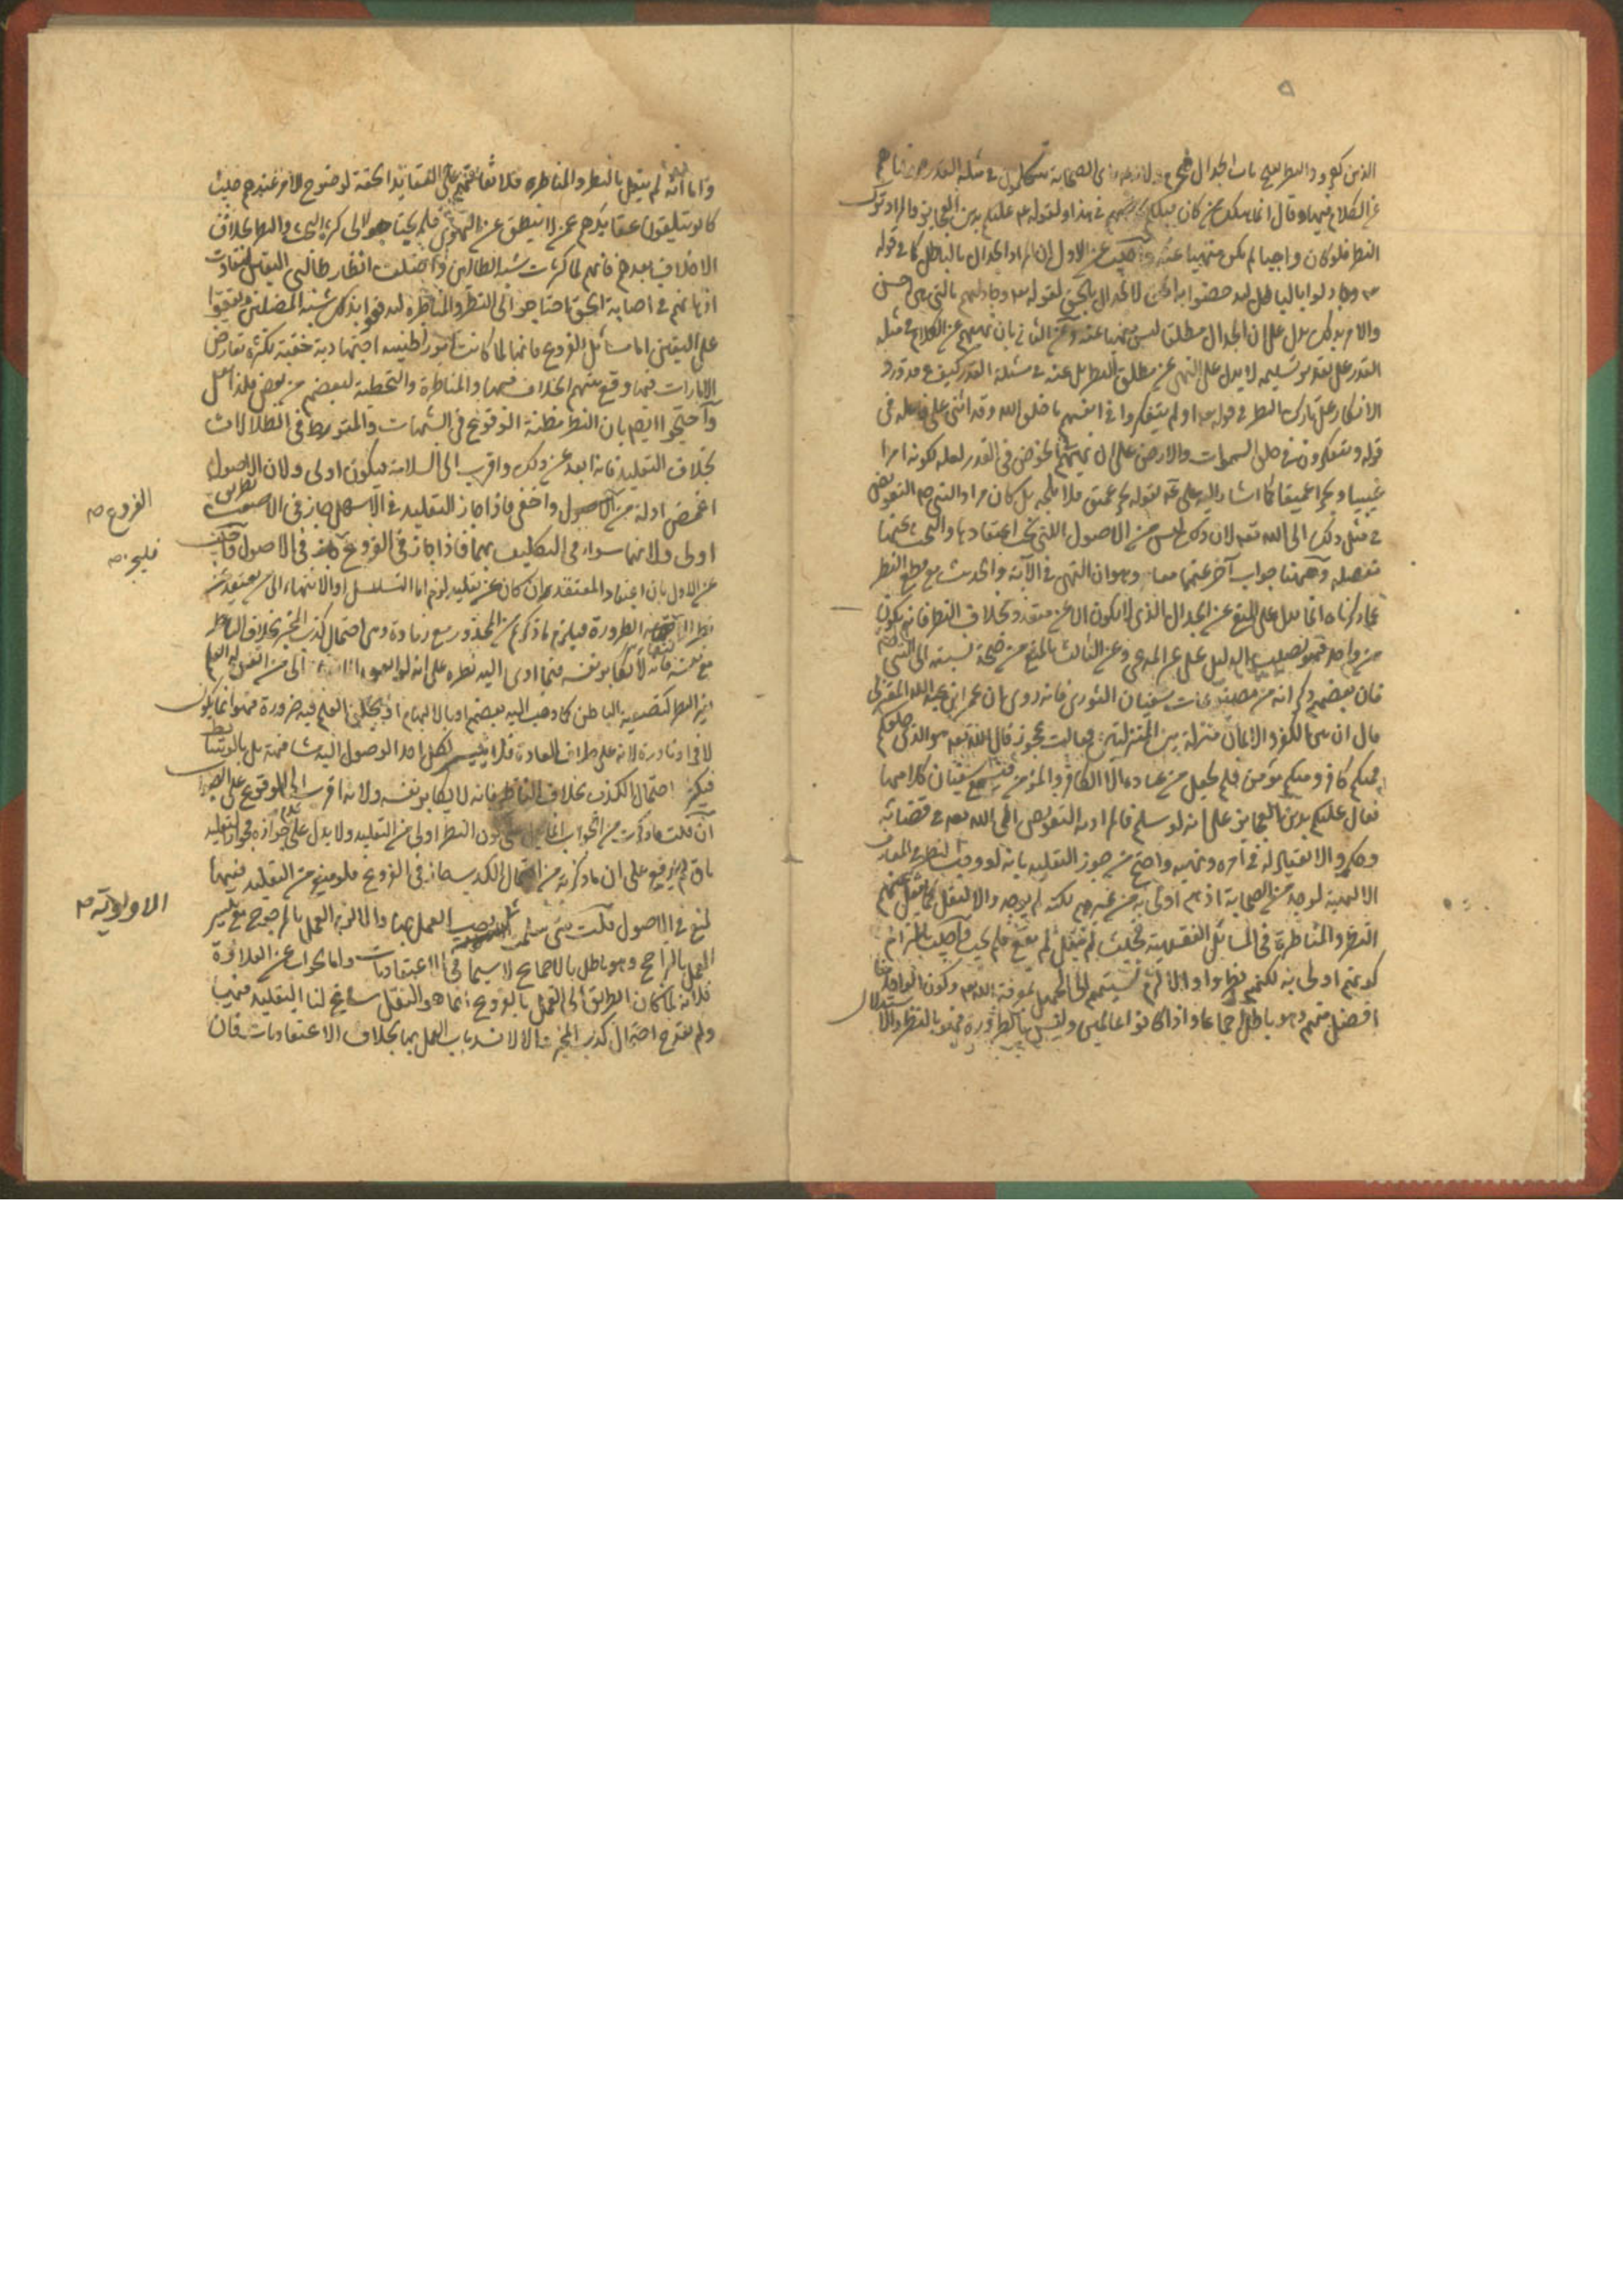 الذين كفروا والنظر يفتح باب الجدال
عن الكلام فيها وقال انما هلك من كان قبلكم في هذا ولقوله عم عليكم بدين العجائز والمراد ترك
النظر فلو كان واجبا لم يكن منهيا عنه واجيب عن الاول بان المراد الجدال بالباطل كما في قوله
تع وجادلوا بالباطل ليدحضوا به الحق لا الجدال بالحق لقوله تع وجادلهم بالتي هي احسن
والامر بذلك يدل على ان الجدال مطلقا ليس منهيا عنه وعن الثاني بان نهيهم عن الكلام في مسئلة
القدر على تقدير تسليمه لا يدل على النهي عن مطلق النظر بل عنه في مسئلة القدر كيف وقد ورد
الانكار على تارك النظر في قوله تع اولم يتفكروا في انفسهم ما خلق الله وقد اثنى على فاعله في
قوله ويتفكرون في خلق السموات والارض على ان نهيهم الخوض في القدر لعله لكونه امرا
غيبيا وبحرا عميقا كما اشار اليه علي بقوله بحر عميق فلا تلجه بل كان مراد النبي صم التفويض
في مثل ذلك الى الله تع لان ذلك ليس من الاصول التي يجب اعتقادها والبحث عنها
مفصلة وههنا جواب آخر عنهما معا وهو ان النهي في الآية والحديث مع قطع النظر
عما ذكرناه انما يدل على النهي عن الجدال الذي لا يكون الا عن متعدد بخلاف النظر فانه يكون
من واحد فهو نصب الدليل على غير المدعى وعن الثالث بالمنع من صحة نسبته الى النبي صم
فان بعضهم ذكر انه من مصنوعات سفيان الثوري فانه روي ان عمر ابن عبد الله المعتزلي
قال ان بين الكفر والايمان منزلة بين المنزلتين فقالت عجوز قال الله تعه هو الذي خلقكم
فمنكم كافر ومنكم مؤمن فلم يجعل من عباده الا الكافر والمؤمن فسمع سفيان كلامها
فقال عليكم بدين العجائز على انه لو سلم فالمراد به التفويض الى الله تعه في قضائه
وحكمه والانقياد له في امره ونهيه واحتج من جوز التقليد بانه لو وجب النظر في المعارف
الالهية لوجد من الصحابة اذ هم اولى به من غيرهم لكنه لم يوجد والا لنقل كما نقل عنهم
النظر والمناظرة في المسائل الفقهية فحيث لم ينقل لم يقع فلم يجب واجيب بالتزام
كونهم اولى به لكنهم نظروا والا لزم نسبتهم الى الجهل بمعرفة الله تع وكون الواحد منا
افضل منهم وهو باطل اجماعا واذا كانوا عالمين وليس بالضرورة فهو بالنظر والاستدلال
واما انه لم ينقل بالنظر والمناظرة فلاتفاقهم على العقائد الحقة لوضوح الامر عندهم حيث
كانوا يتلقون عقائدهم عمن لا ينطق عن الهوى فلم يحتاجوا الى كثرة البحث والنظر بخلاف
الاخلاف بعدهم فانهم لما كثرت شبه الضالين واختلفت انظار طالبي اليقين لتفاوت
اذهانهم في اصابة الحق احتاجوا الى النظر والمناظرة ليدفعوا بذلك شبه المضلين ويقفوا
على اليقين اما مسائل الفروع فانها لما كانت امورا ظنية اجتهادية خفية لكثرة تعارض
الامارات فيها وقع بينهم الخلاف فيها والمناظرة والتخطئة لبعضهم من بعض فلذا نقل
واحتجوا ايضا بان النظر مظنة الوقوع في الشبهات والتورط في الضلالات
بخلاف التقليد فانه ابعد عن ذلك واقرب الى السلامة فيكون اولى ولان الاصول
اغمض ادلة من الفروع صه واخفى فاذا جاز التقليد في الاسهل جاز في الاصعب بطريق
اولى ولانهما سواء في التكليف بهما فاذا جاز في الفروع فليجز صه في الاصول واجيب
عن الاول بان اعتقاد المعتقد ان كان عن تقليد لزم اما التسلسل او الانتهاء الى من يعتقد عن
نظر لانتفاء الضرورة فيلزم ما ذكرتم من المحذور مع زيادة وهي احتمال كذب المخبر بخلاف الناظر
مع نفسه فانه لا يكابر نفسه فيما ادى اليه نظره على انه لو
غير النظر كتصفية الباطن كما ذهب اليه بعضهم او بالالهام او بخلق العلم فيه ضرورة فهو انما يكون
لافراد نادرة لانه على خلاف العادة فلا يتيسر لكل احد الوصول اليه مشافهة بل بالوسائط
فيكثر احتمال الكذب بخلاف الناظر فانه لا يكابر نفسه ولانه اقرب الى الوقوع على الصواب
ان قلت ما ذكرت من الجواب انما يدل على كون النظر اولى من التقليد ولا يدل على عدم جوازه فجواز التقليد
باق لم يرفع على ان ما ذكرته من احتمال الكذب جاز في الفروع فلو منع من التقليد فيها
لمنع في الاصول قلت متى سلمت الاولوية صه وجب العمل بها والا لزم العمل بالمرجوح مع تيسر
العمل بالراجح وهو باطل بالاجماع لا سيما في الاعتقاديات واما الجواب عن العلاوة
فلانه لما كان الطريق الى العمل بالفروع انما هو النقل ساغ لنا التقليد فيها
ولم يقدح احتمال كذب المخبر والا لانسد باب العمل بها بخلاف الاعتقاديات فان